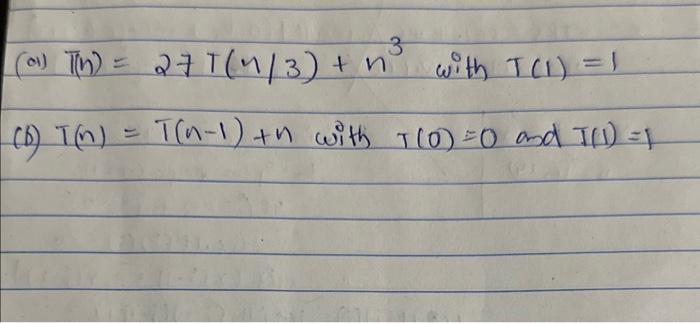 (a) T(n) = 27T(n/3) + n³ with T(1) = 1
(b) T(n) = T(n-1) + n with T(0) = 0 and T(1) = 1